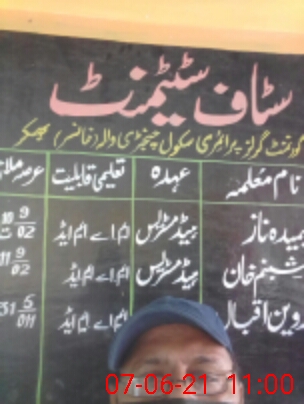 سٹاف سٹیٹمنٹ
گورنمنٹ گرلز پرائمری سکول چھنڑی والہ (خانسر) بھکر
نام معلمہ عہدہ تعلیمی قابلیت عرصہ ملا
حمیدہ ناز ہیڈ مسٹریس ایم اے ایم ایڈ
شبنم خان ہیڈ مسٹریس ایم اے ایم ایڈ
پروین اقبال ایم اے ایم ایڈ
07-06-21 11:00